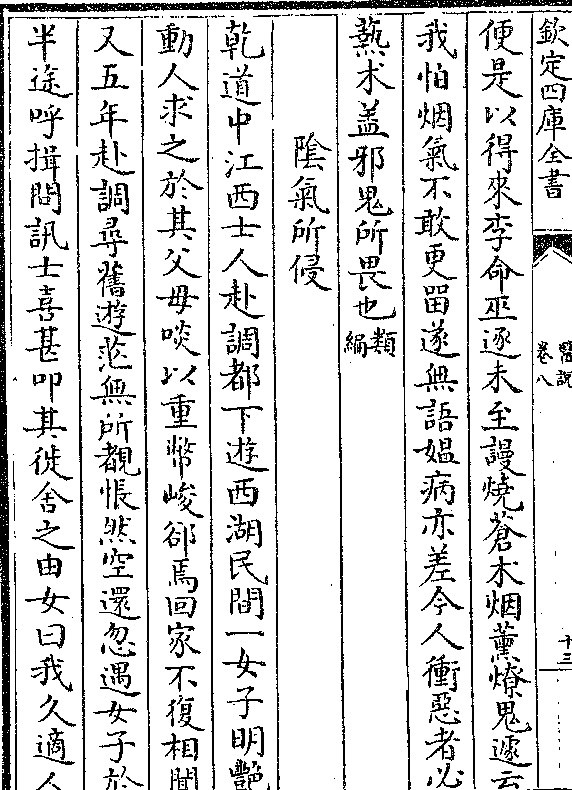 欽定四庫全書
醫說
卷八
十三
便是以得來李命巫逐未至謾燒蒼术烟薰燎鬼遽云
我怕烟氣不敢更畱遂無語媪病亦差今人衝惡者必
爇术盖邪鬼所畏也類編
陰氣所侵
乾道中江西士人赴調都下遊西湖民間一女子明艷
動人求之於其父母啖以重幣峻郤焉回家不復相聞
又五年赴調尋舊遊茫無所覩悵然空還忽遇女子於
半途呼揖問訊士喜甚叩其徙舍之由女曰我久適人